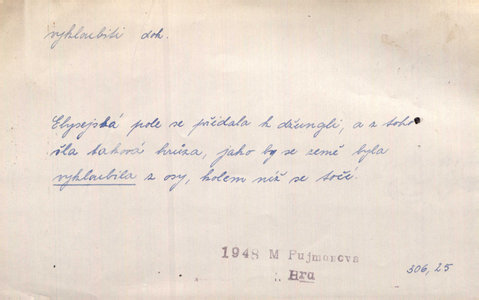 vykloubiti dok.
Elysejská pole se přidala k džungli, a z toho
šla taková hrůza, jako by se země byla
vykloubila z osy, kolem níž se točí.
1948 M Pujmonova
Hra
306, 25